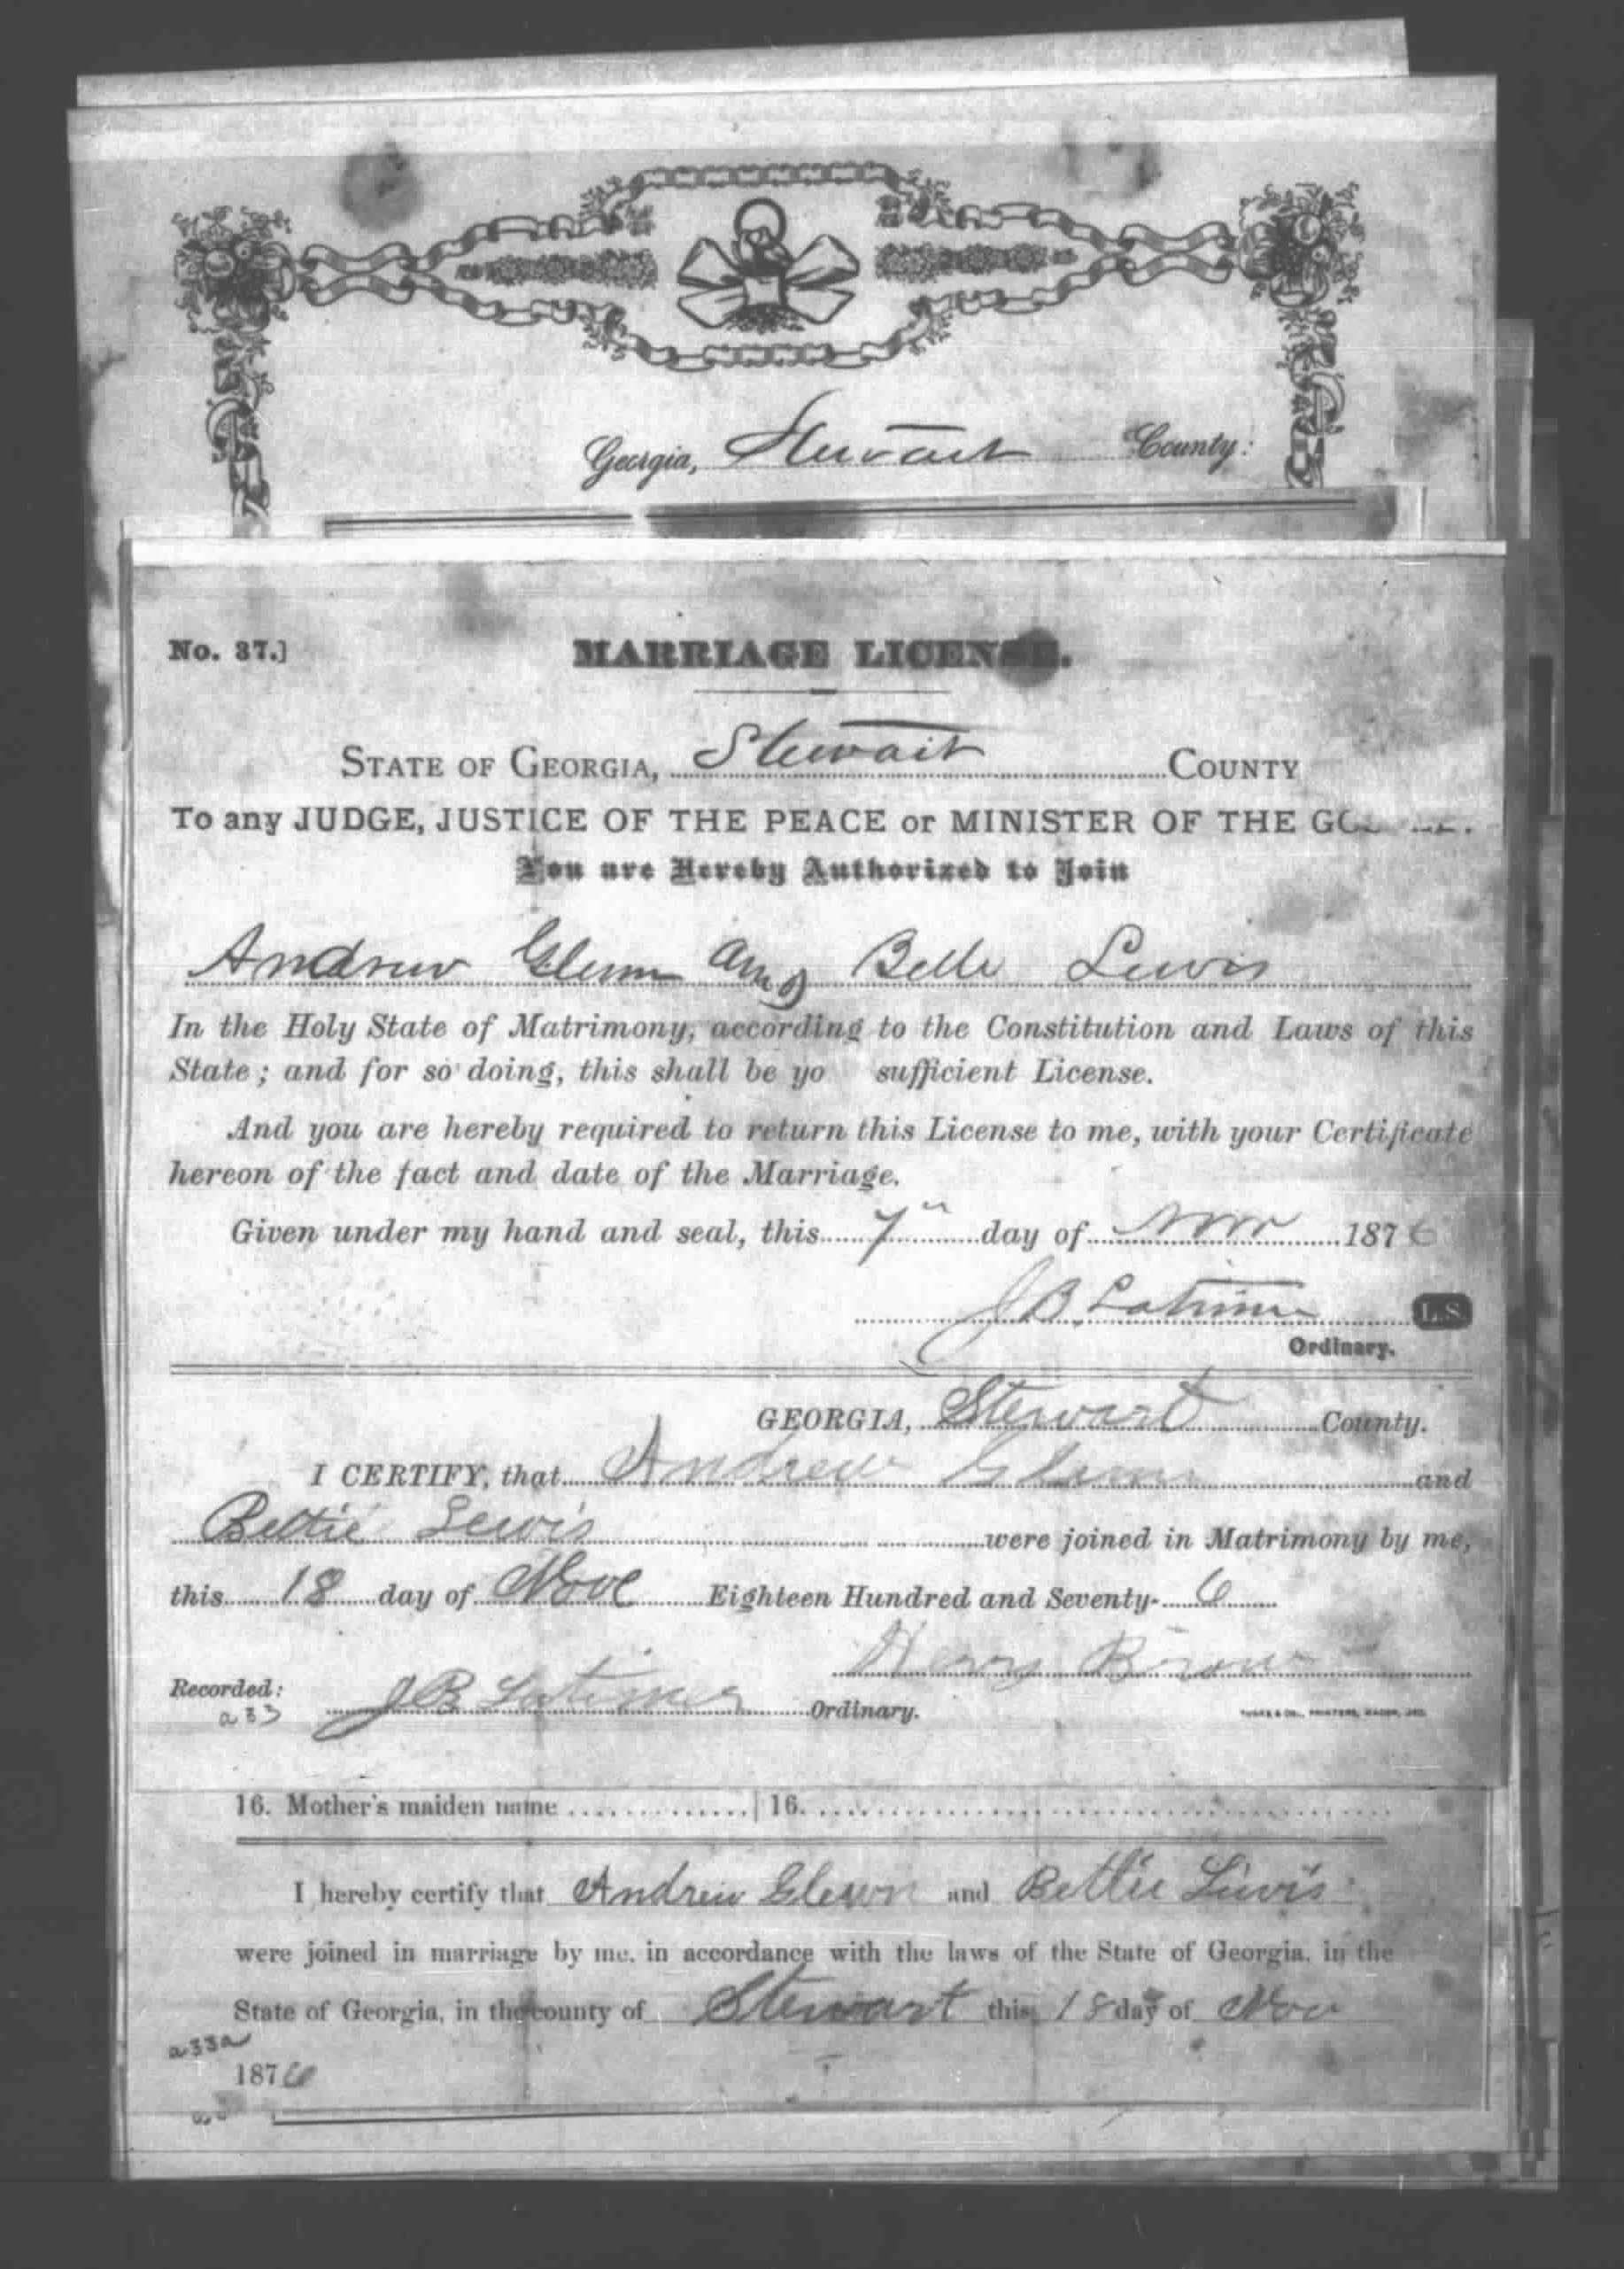 Georgia, Stewart County:
No. 37.]
MARRIAGE LICENSE.
STATE OF GEORGIA, Stewart COUNTY
To any JUDGE, JUSTICE OF THE PEACE or MINISTER OF THE
You are Hereby Authorized to Join
Andrew Glenn and Belle Lewis
In the Holy State of Matrimony, according to the Constitution and Laws of this
State; and for so doing, this shall be yo sufficient License.
And you are hereby required to return this License to me, with your Certificate
hereon of the fact and date of the Marriage.
Given under my hand and seal, this 7th day of Nov 1876
J B Latimer L.S.
Ordinary.
GEORGIA, Stewart County.
I CERTIFY, that Andrew Glenn and
Bettie Lewis were joined in Matrimony by me,
this 18 day of Nove Eighteen Hundred and Seventy- 6
Brown
Recorded: J B Latimer Ordinary.
a 33
16. Mother's maiden name 16.
I hereby certify that Andrew Glenn and Bettie Lewis
were joined in marriage by me, in accordance with the laws of the State of Georgia, in the
State of Georgia, in the county of Stewart this 18 day of Nov
a33a
1876